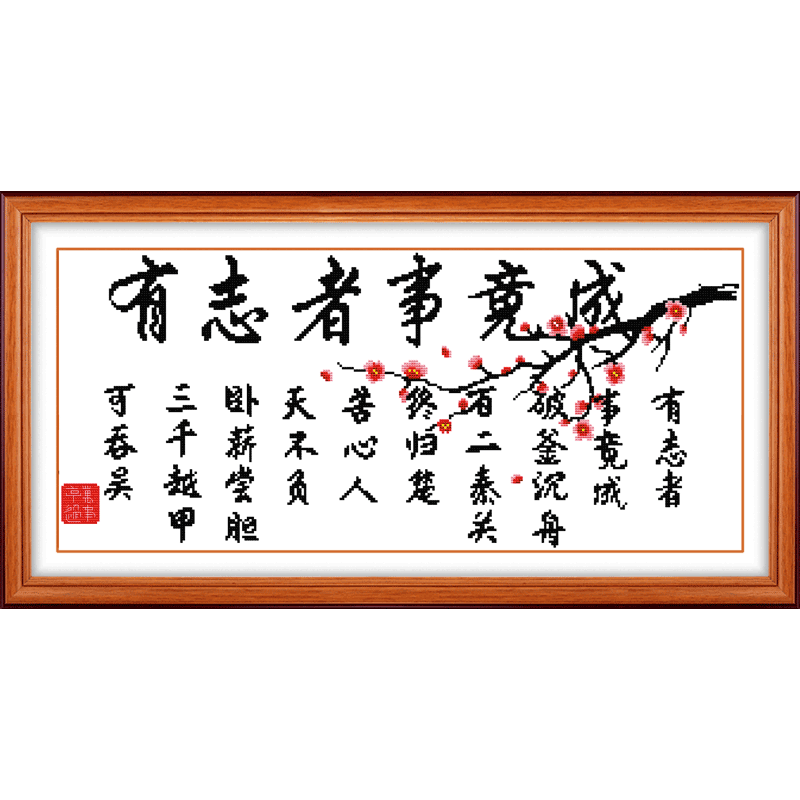 有志者事竟成
有志者
事竟成
破釜沉舟
百二秦关
终归楚
苦心人
天不负
卧薪尝胆
三千越甲
可吞吴